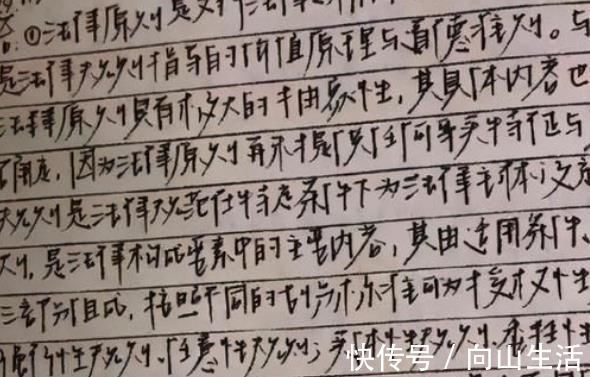 答:①法律原则是
是法律规则背后的价值原理与道德准则。与
法律原则具有较大的抽象性,其具体内容也
确定,因为法律原则再不提供任何事实特征与
规则是法律规范在特定条件下为法律主体设定
则,是法律构成要素中的主要内容,其由适用条件、
三部分组成,按照不同的划分标准可为技术性
性规则、任意性规则;实体性规则、
快传号/向山生活